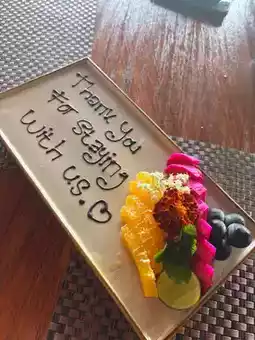 Thank You
For staying
with us. ♡